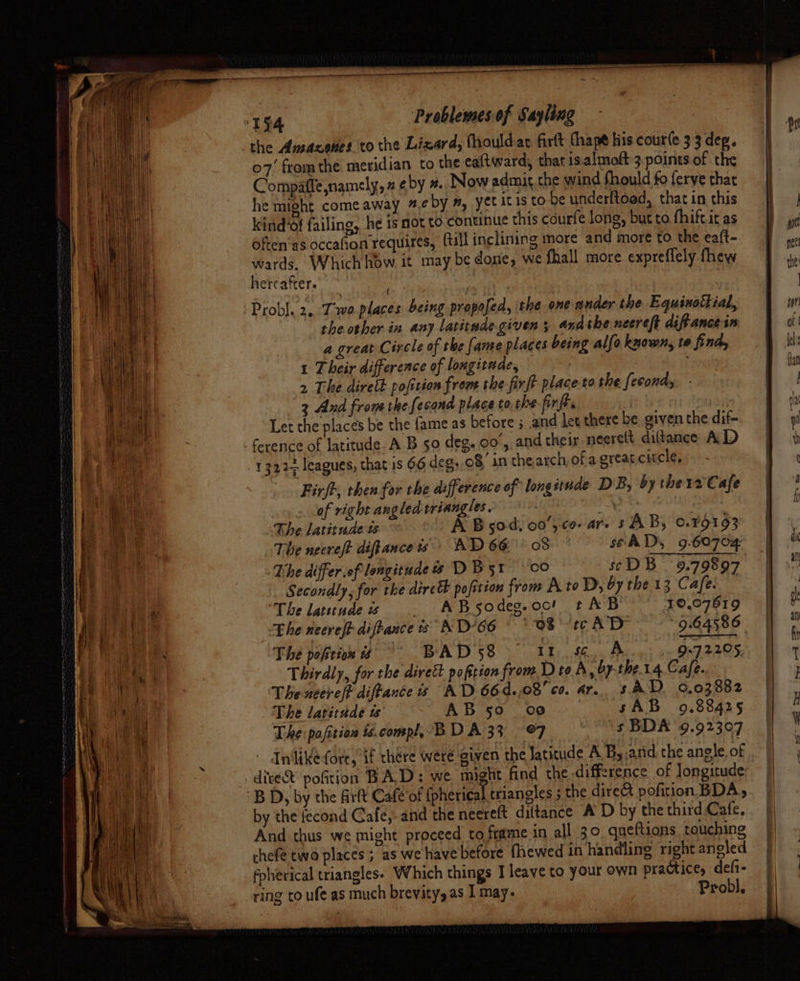 154 Problemes of Sayling
the Amazones to the Lizard, ſhould at firſt ſhape his courſe 33 deg.
07′ from the meridian to the eaſtward, that is almoſt 3 points of the
Compaſſe, namely, n e by n. Now admit the wind ſhould ſo ſerve that
he might come away n e by n, yet it is to be underſtood, that in this
kind of ſailing, he is not to continue this courſe long, but to ſhift it as
often as occaſion requires, ſtill inclining more and more to the eaſt-
wards. Which how it may be done, we ſhall more expreſſely ſhew
hereafter.
Probl. 2. Two places being propoſed, the one under the Equinoctial,
the other in any latitude given ; and the neereſt diſtance in
a great Circle of the ſame places being alſo known, to find,
1 Their difference of longitude,
2 The direct poſition from the firſt place to the ſecond,
3 And from the ſecond place to the firſt.
Let the places be the ſame as before ; and let there be given the dif-
ference of latitude A B 50 deg. 00′, and their neereſt diſtance A D
1322⅔ leagues, that is 66 deg. 08′ in the arch of a great circle.
Firſt, then for the difference of longitude D B, by the 12 Caſe
of right angled triangles.
The latitude is A B 50 d. 00′, co. ar. s A B, 0.19193
The neereſt diſtance is A D 66 08 sc A D, 9.60704
The differ. of longitude is D B 51 00 sc D B 9.79897
Secondly, for the direct poſition from A to D, by the 13 Caſe.
The latitude is A B 50 deg. 00′ t A B 10.07619
The neereſt diſtance is A D 66 08 tc A D 9.64586
The poſition is B A D 58 11 sc A 9.72205
Thirdly, for the direct poſition from D to A, by the 14 Caſe.
The neereſt diſtance is A D 66 d. 08′ co. ar. s A D 0.03882
The latitude is A B 50 00 s A B 9.88425
The poſition is compl. B D A 33 07 s B D A 9.92307
In like ſort, if there were given the latitude A B, and the angle of
direct poſition B A D : we might find the difference of longitude
B D, by the firſt Caſe of ſpherical triangles ; the direct poſition B D A,
by the ſecond Caſe, and the neereſt diſtance A D by the third Caſe.
And thus we might proceed to frame in all 30 queſtions touching
theſe two places ; as we have before ſhewed in handling right angled
ſpherical triangles. Which things I leave to your own practice, deſi-
ring to uſe as much brevity, as I may.
Probl.